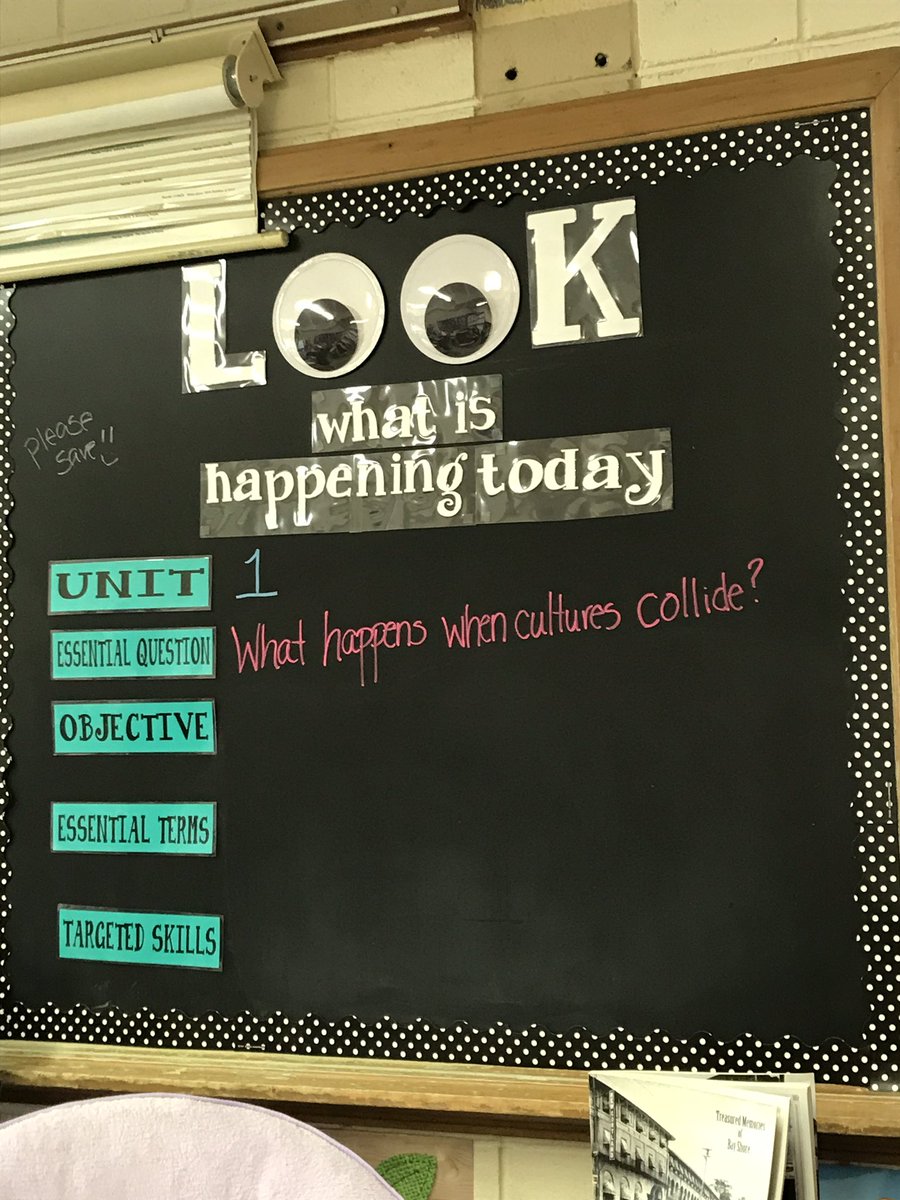 LOOK
what is
happening today
please
save!!
UNIT 1
ESSENTIAL QUESTION What happens when cultures collide?
OBJECTIVE
ESSENTIAL TERMS
TARGETED SKILLS
Treasured Memories
of
Bay Shore